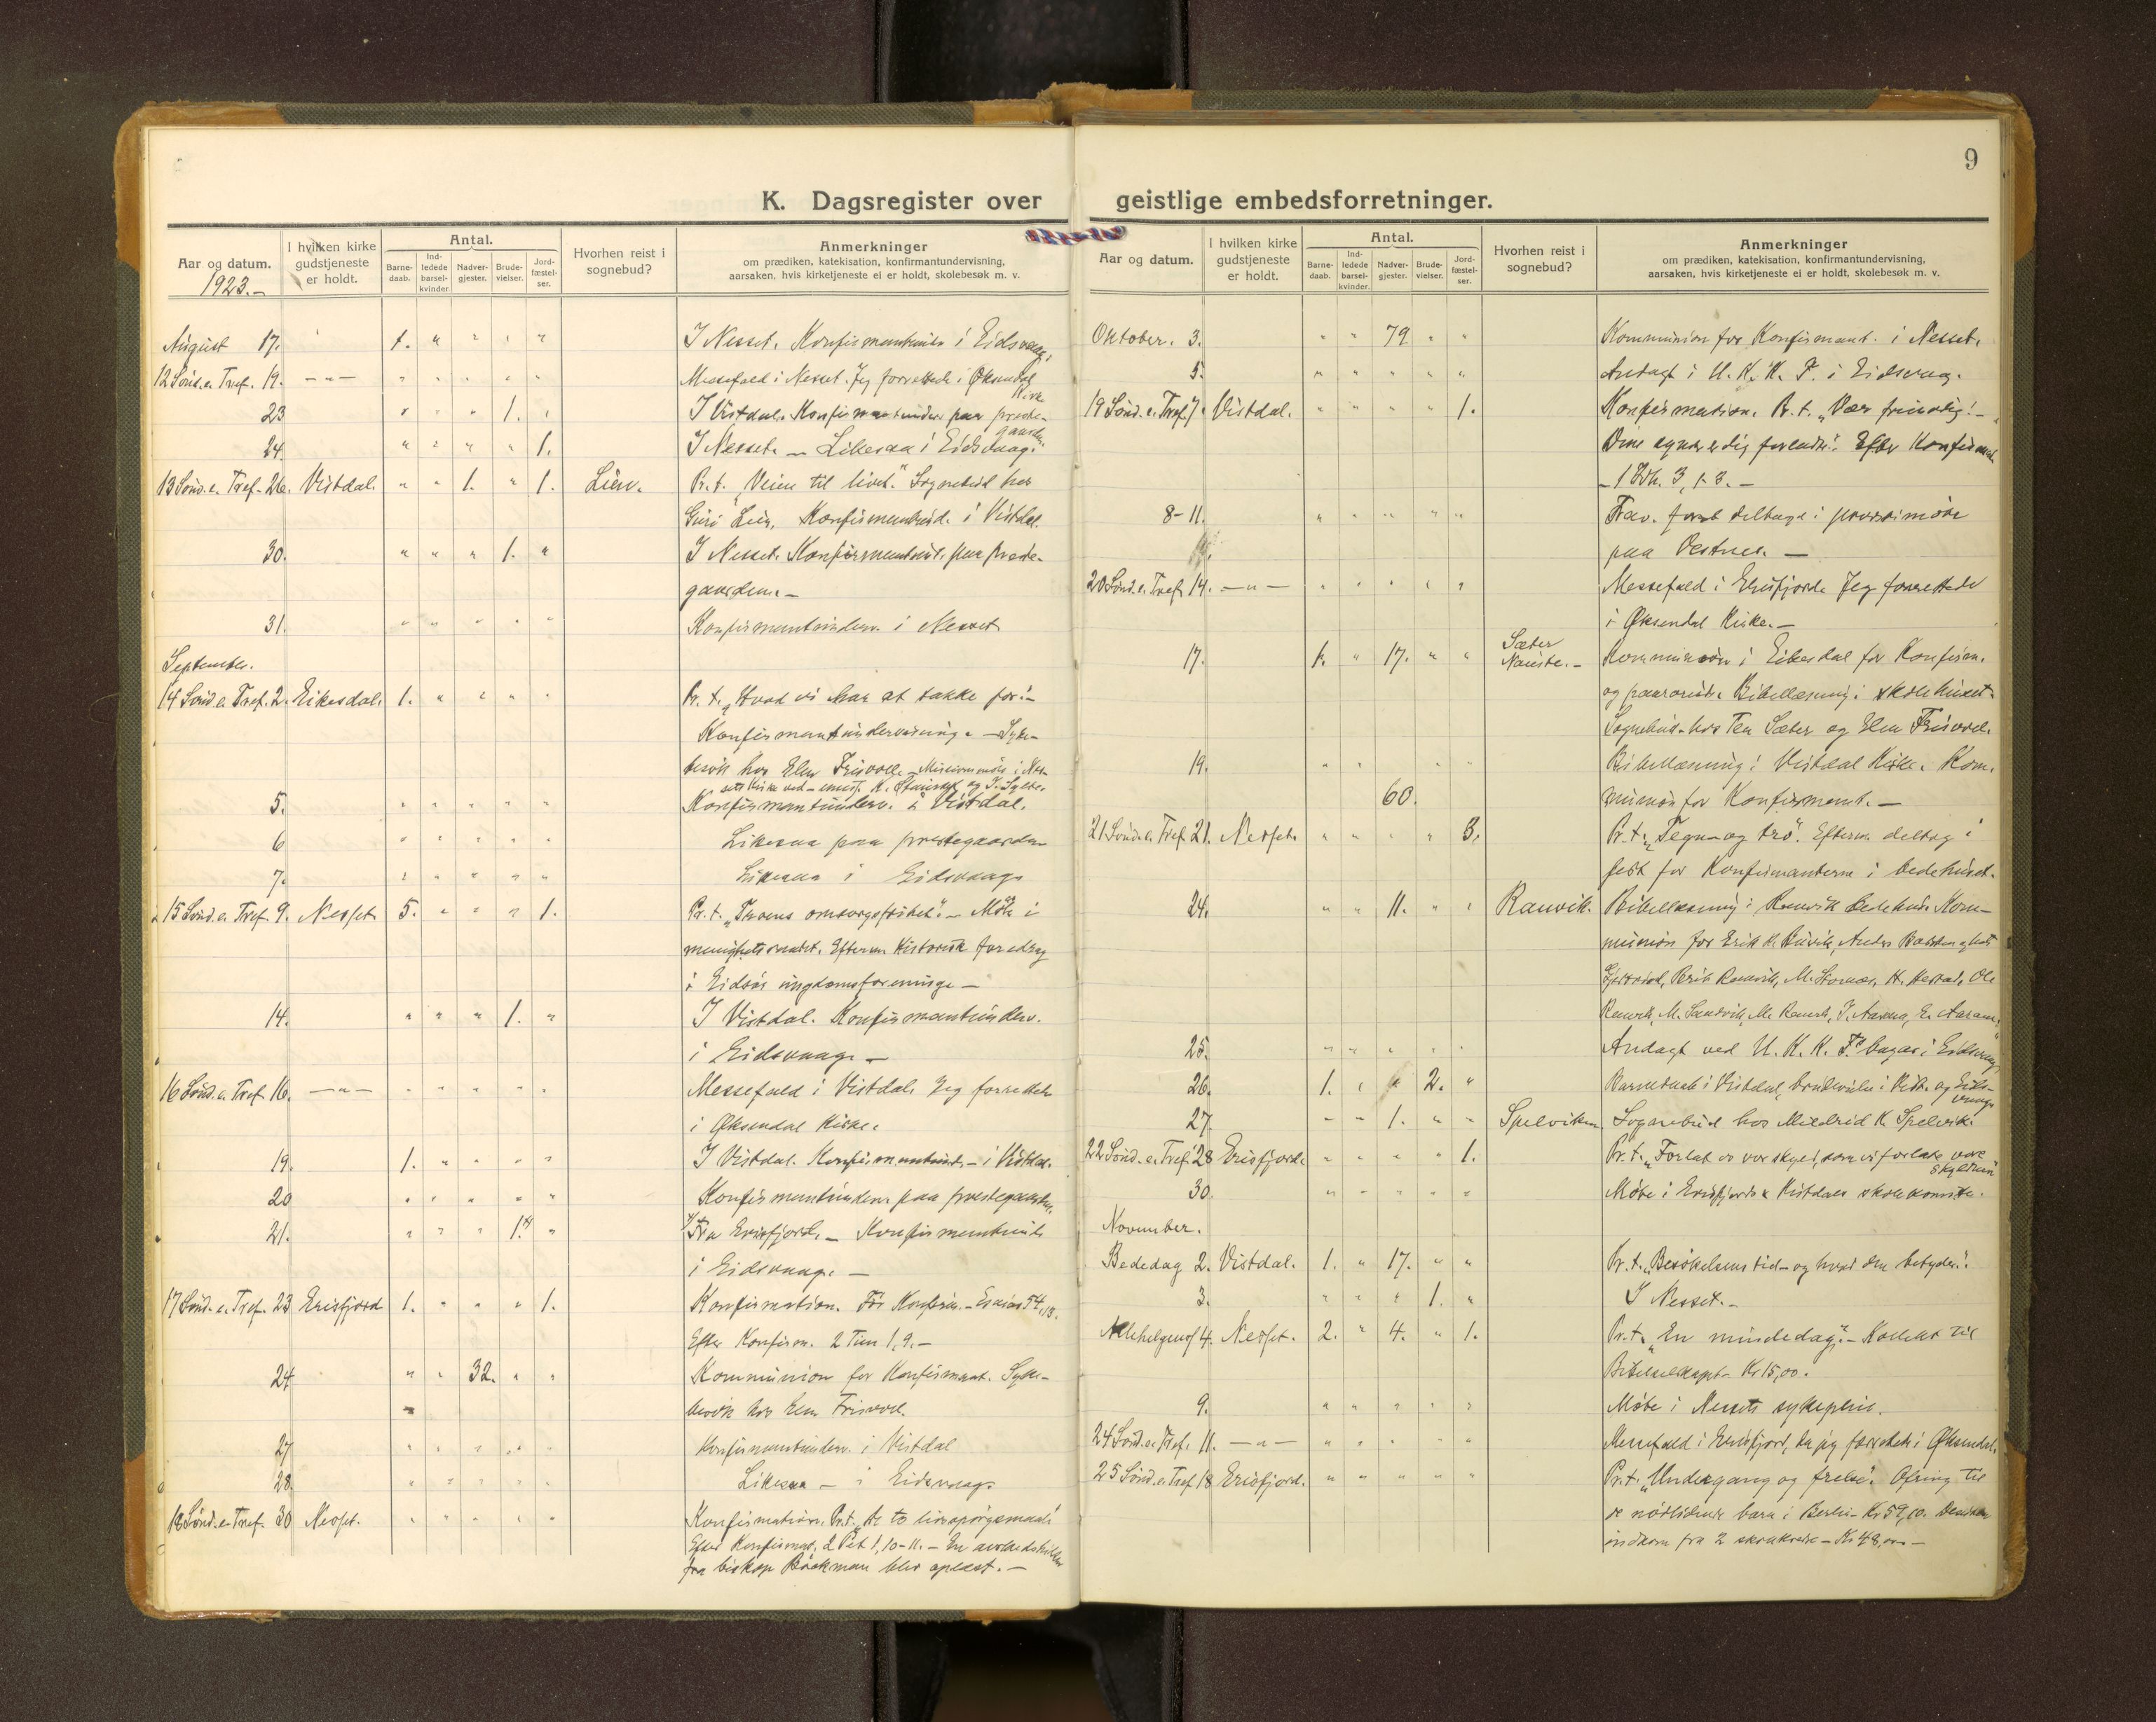 9
K. Dagsregister over geistlige embedsforretninger.
Aar og datum. I hvilken kirke gudstjeneste er holdt. Antal. Barne-daab. Ind-ledede barsel-kvinder Nadver-gjester. Brude-vielser. Jord-fæstel-ser. Hvorhen reist i sognebud? Anmerkninger om prædiken, katekisation, konfirmantundervisning, aarsaken, hvis kirketjeneste ei er holdt, skolebesøk m. v.
1923.-
August 17. 1. " " " " I Nesset. Konfirmantund. i Eidsvaag.
12 Sønd. e. Tref. 19. -"- " " " " " Messefald i Nesset. Jeg forrettede i Øksendal Kirke
23 " " " 1. " I Vistdal. Konfirmantunderv. paa prestegaarden.
24. " " " " 1. I Nesset. - Likesaa i Eidsvaag.
13 Sønd. e. Tref. 26. Vistdal. " " 1. " 1. Lien. Pr. t. "Veien til livet." Sognebud hos
Guri Lien. Konfirmantund. i Vistdal.
30. " " " 1. " I Nesset. Konfirmantund. paa preste-
gaarden.-
31. " " " " " Konfirmantunderv. i Nesset.
September.
14 Sønd. e. Tref. 2. Eikesdal. 1. " " " " Pr. t. "Hvad vi har at takke for."-
Konfirmantundervisning. - Syke-
besøk hos Elen Frisvoll. - Missionsmøte i Nes-
sets Kirke ved
5. " " " " " Konfirmantunderv. i Vistdal.
6 " " " " " Likesaa paa prestegaarden
7. " " " " " Likesaa i Eidsvaag.
15 Sønd. e. Tref. 9. Nesset. 5. " " " 1. Pr. t. "Troens omsorgsfrihet." - Møte i
menighetsraadet. Efterm. Historisk foredrag
i Eidsør ungdomsforening. -
14. " " " 1. " I Vistdal. Konfirmantunderv.
i Eidsvaag. -
16 Sønd. e. Tref. 16. -"- " " " " " Messefald i Vistdal. Jeg forrettede
i Øksendal Kirke.
19. 1. " " " " I Vistdal. Konfirmantund. - i Vistdal.
20 " " " " " Konfirmantunderv. paa prestegaarden.
21. " " " 1. " Fra Erisfjord. - Konfirmantund.
i Eidsvaag. -
17 Sønd. e. Tref. 23 Erisfjord 1. " " " 1. Konfirmation. Før Konfirm. - Esaias 54,13.
Efter Konfirm. 2 Tim 1,9.-
24 " " 32. " " Kommunion for Konfirmant. Syke-
besøk hos Elen Frisvoll.
27 " " " " " Konfirmantunderv. i Vistdal
28. " " " " " Likesaa - i Eidsvaag.
18 Sønd. e. Tref. 30 Nesset. " " " " " Konfirmation. Pr. t. "De to livsspørgsmaal."
Efter Konfirmat. 2 Pet 1, 10-11. - En avskedshilsen
fra biskop Bøckman blev oplæst. -
Aar og datum. I hvilken kirke gudstjeneste er holdt. Antal. Barne-daab. Ind-ledede barsel-kvinder. Nadver-gjester. Brude-vielser. Jord-fæstel-ser. Hvorhen reist i sognebud? Anmerkninger om prædiken, katekisation, konfirmantundervisning, aarsaken, hvis kirketjeneste ei er holdt, skolebesøk m. v.
Oktober. 3. " " 79. " " Kommunion for Konfirmant. i Nesset.
5. " " " " " Andagt i U. K. K. F. i Eidsvaag.
19 Sønd. e. Tref. 7. Vistdal. " " " " 1. Konfirmation. Pr. t. "Vær frimodig! -
Dine synder er dig forladt." Efter Konfirmat.
- 1 Joh. 3, 1-3. -
8-11. " " " " " Frav. for at deltage i provstimøte
paa Vestnes. -
20 Sønd. e. Tref. 14. -"- " " " " " Messefald i Erisfjord. Jeg forrettede
i Øksendal Kirke. -
17. 1. " 17. " " Sæter Nauste.- Kommunion i Eikesdal for Konfirm.
og paarørende. Bibellæsning i skolehuset.
Sognebud hos Tea Sæter og Elen Frisvoll.
19. " " " " Bibellæsning i Vistdal Kirke. Kom-
60. munion for Konfirmant. -
21 Sønd. e. Tref. 21. Nesset. " " " " 3. Pr. t. "Tegn - og tro". Efterm. deltog i
fest for Konfirmanterne i bedehuset.
24. " " 11. " " Ranvik. Bibellæsning i Ranvik bedehus. Kom-
munion for Erik
Ole
Ranvik, M. Sandvik, M. Ranvik,
25. " " " " " Andagt ved U. K. K. F.s bazar i Eidsvaag.
26. 1. " " 2. " Barnedaab i Vistdal, brudevielse i Vistd. og Eids-
vaag.
27. " " 1. " " Spelviken Sognebud hos Mildrid K. Spelvik.
22 Sønd. e. Tref. 28 Erisfjord. " " " " 1. Pr. t. "Forlat os vor skyld, som vi forlate vore
skyldnere"
30. " " " " " Møte i Erisfjord & Vistdals skolekomite.
November.
Bededag 2. Vistdal. 1. " 17. " " Pr. t. "Besøkelsens tid - og hvad den betyder."
3. " " " 1. " I Nesset. -
Allehelgensf. 4. Nesset. 2. " 4. " 1. Pr. t. "En mindedag". - Kollekt til
Bibelselskapet - Kr 15,00.
9. " " " " " Møte i Nessets sykepleie.
24 Sønd. e. Tref. 11. -"- " " " " " Messefald i Erisfjord, da jeg forrettet i Øksendal.
25 Sønd. e. Tref. 18 Erisfjord. " " " " " Pr. t. "Undergang og frelse". Ofring til
de nødlidende barn i Berlin - Kr 59,10. Desuten
indkom fra 2 skolekredse - Kr 48,00 -